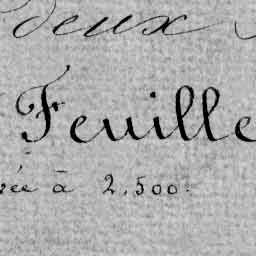 deux
Feuille
vée à 2,500.